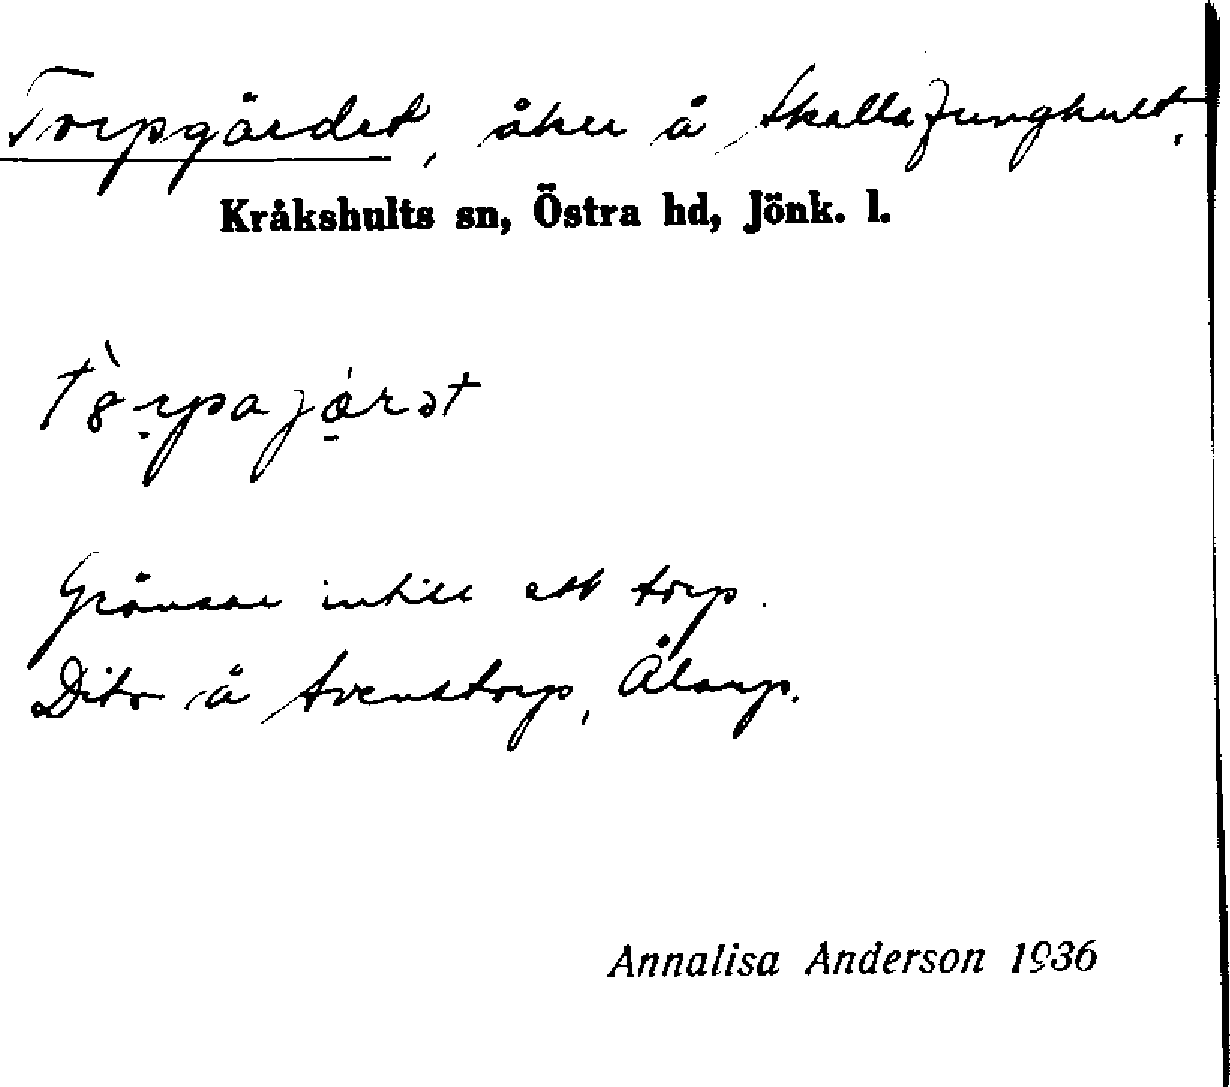 Torpgärdet, åker å Skalla Ljunghult.
Kråkshults sn, Östra hd, Jönk. l.
Gränsar intill ett torp.
Dito å Svenstorp, Ålarp.
Annalisa Anderson 1936